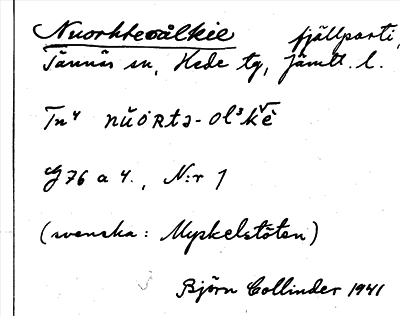 Nuorhteoålkie fjällparti,
Tännäs sn, Hede tg, Jämtl. l.
Tn⁴ nŭoʀtɜ-ol³kĕ̀
G 76 a 4., N:r 1
(svenska: Myskelstöten)
Björn Collinder 1941